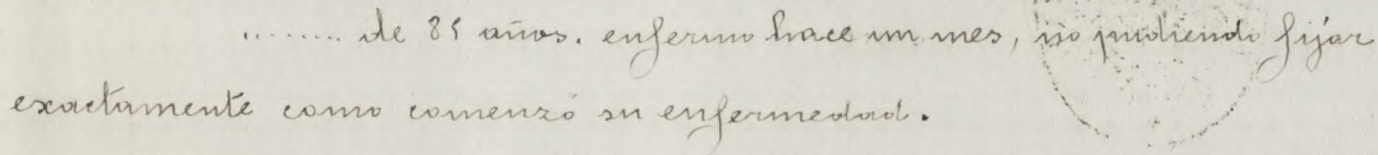 ........ de 85 años. enfermo hace un mes, no pudiendo fijár
exactamente como comenzó su enfermedad.